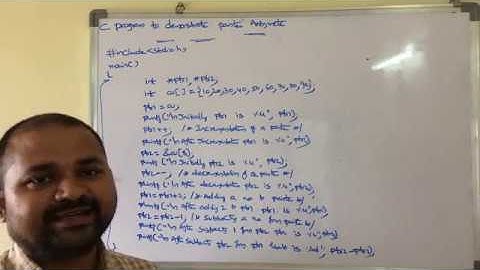 C program to demonstrate pointer Arithmetic
#include<stdio.h>
main()
{
int *ptr1, *ptr2;
int a[] = {10,20,30,40,50,60,70,80,90};
ptr1 = a;
printf("\n Initially ptr1 is %u", ptr1);
ptr1++; /* Incrementation of a pointer */
printf("\n After Incrementation ptr1 is %u", ptr1);
ptr2 = &a[8];
printf("\n Initially ptr2 is %u", ptr2);
ptr2--; /* decrementation of a pointer */
printf("\n After decrementation ptr2 is %u", ptr2);
ptr1 = ptr1+2; /* Adding a no to pointer */
printf("\n After adding 2 to ptr1 ptr1 is %u", ptr1);
ptr2 = ptr2-1; /* subtracting a no from pointer */
printf("\n After subtract 1 from ptr2 ptr2 is %u", ptr2);
printf("\n After subtract ptr2 from ptr1 result is %d", ptr2-ptr1);
}